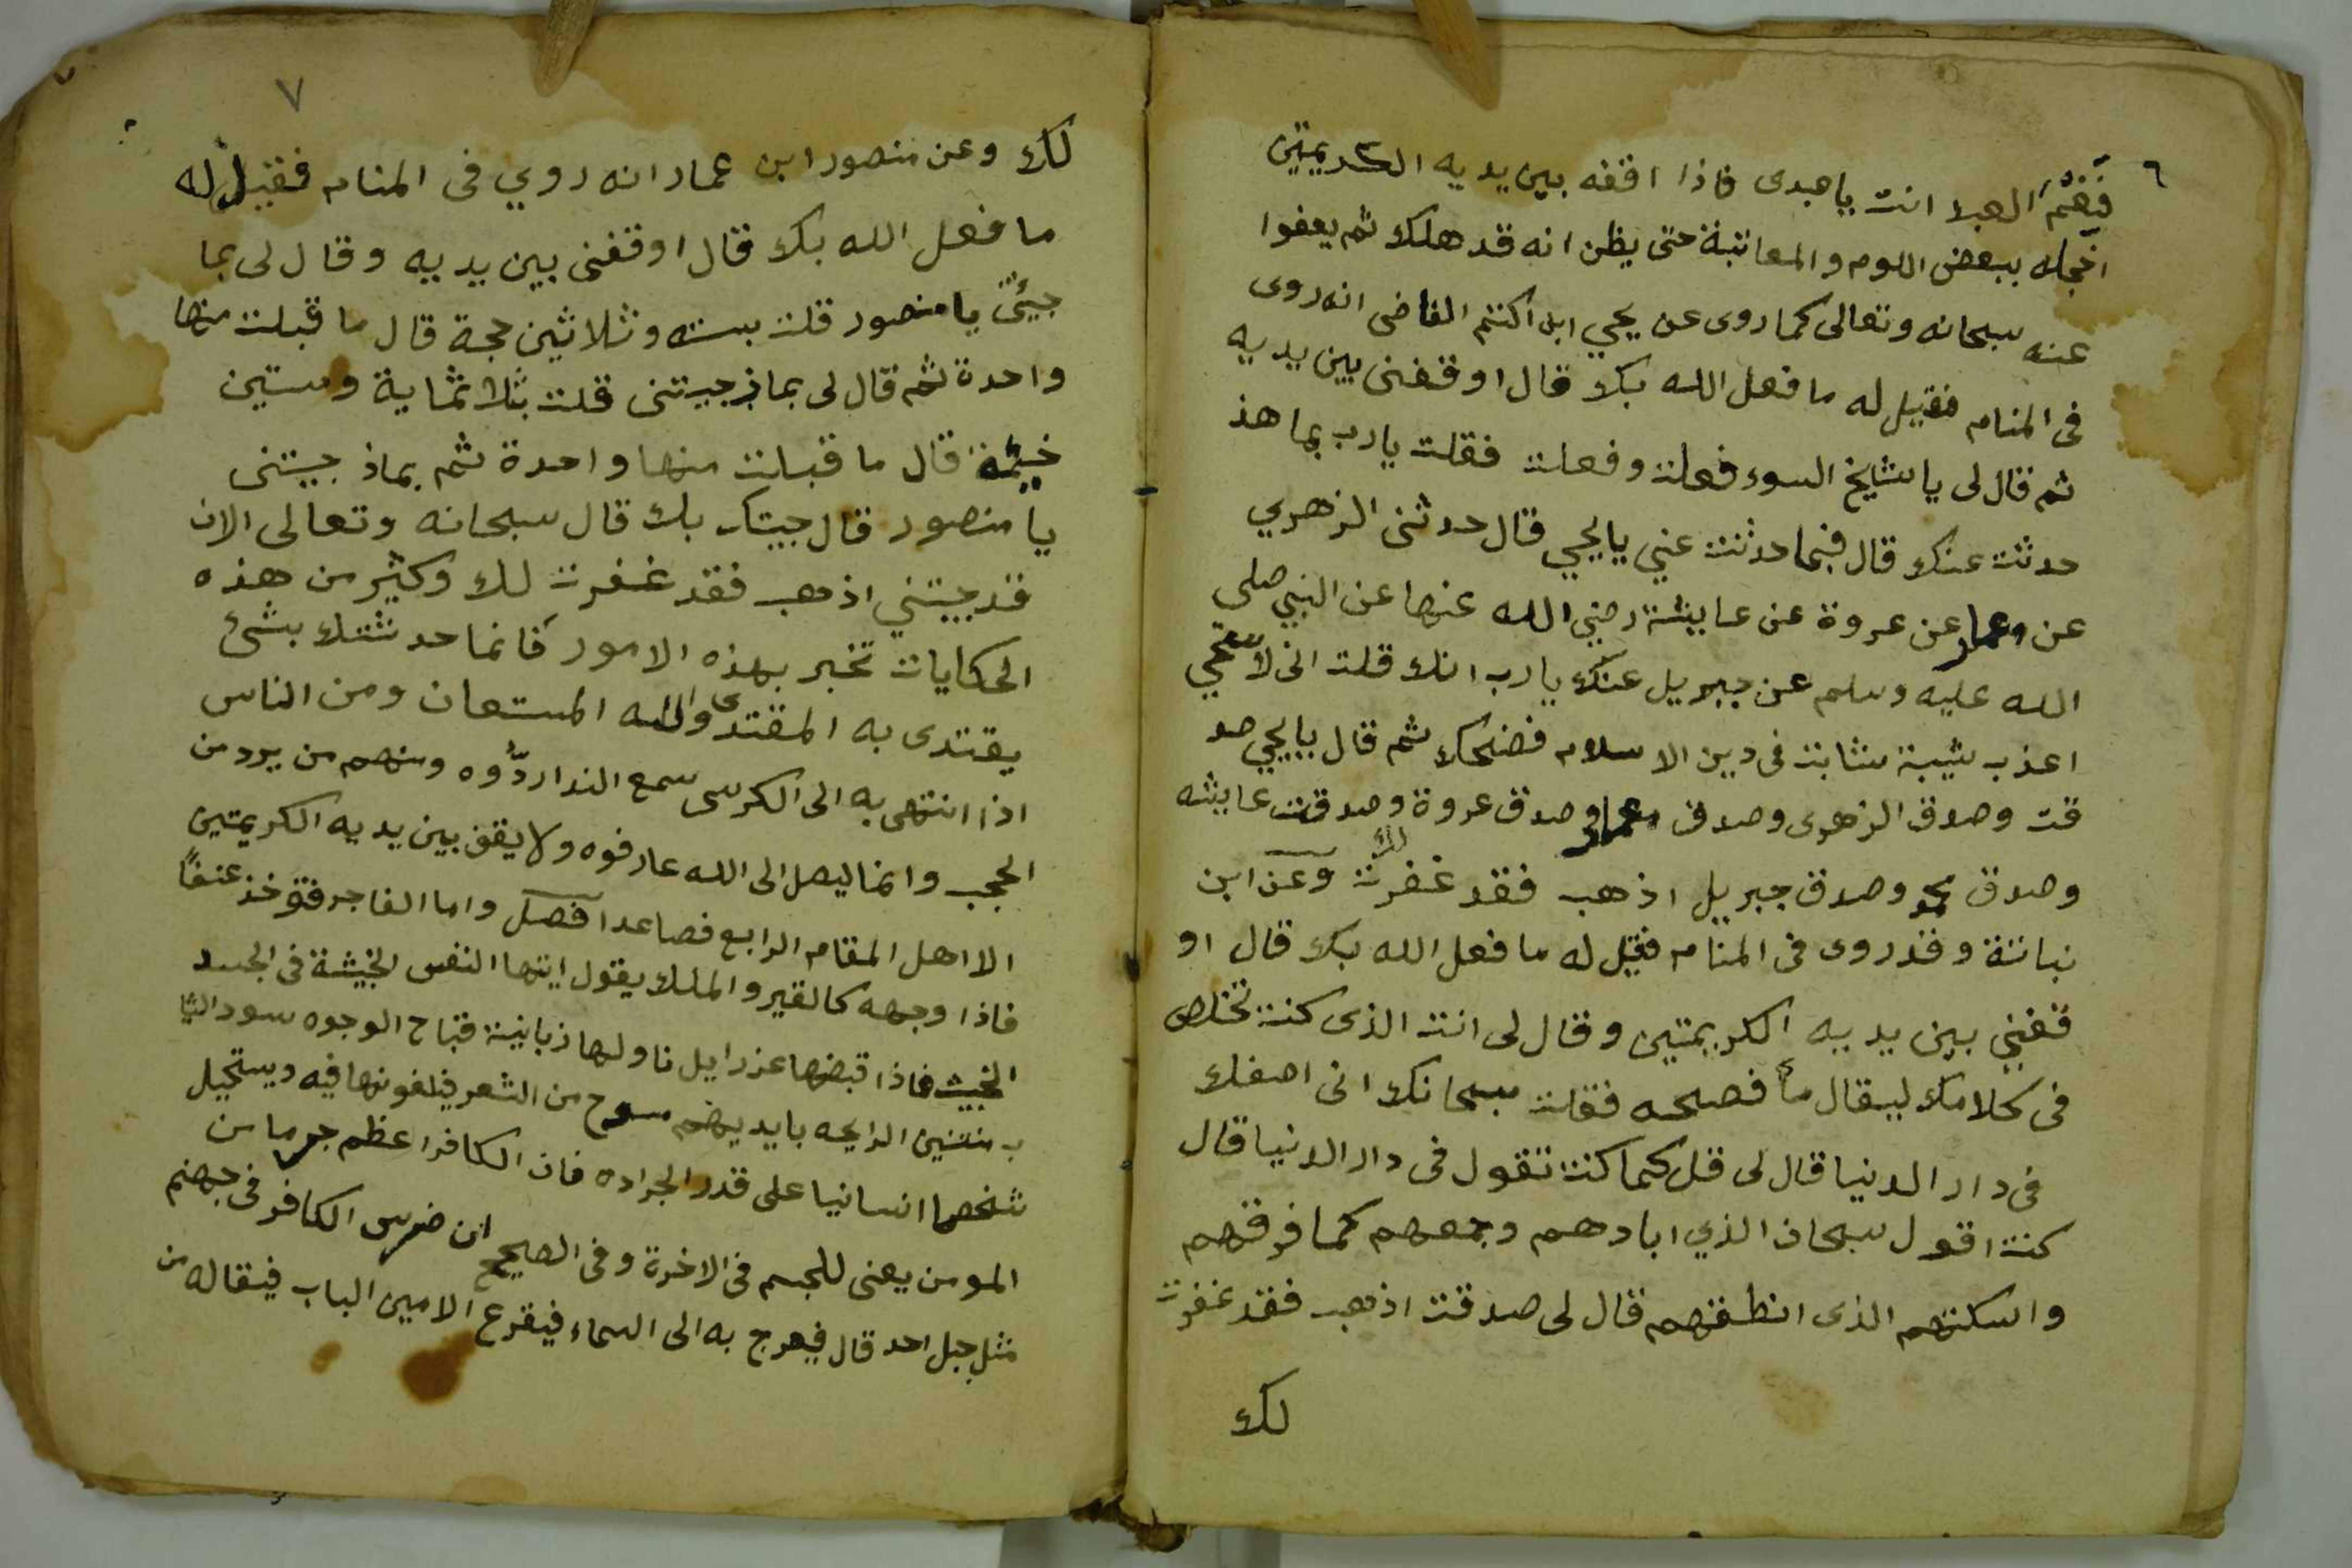 ٦
فَنِعْمَ العبد انت ياعبدى فاذا اقفه بين يديه الكريمتين
اخجله ببعض اللوم والمعاتبة حتى يظن انه قد هلك ثم يعفوا
عنه سبحانه وتعالى كما روى عن يحيي ابن اكثم القاضى انه روى
فى المنام فقيل له ما فعل الله بك قال اوقفنى بين يديه
ثم قال لى يا شايخ السوء فعلت وفعلت فقلت يارب بما هذ
حدثت عنك قال فبما حدثت عني يا يحيي قال حدثنى الزهري
عن معمار عن عروة عن عايشة رضي الله عنها عن النبي صلى
الله عليه وسلم عن جبريل عنك يا رب انك قلت انى لاستحي
اعذب شيبة شابت فى دين الاسلام فضحك ثم قال يا يحيي صد
قت وصدق الزهرى وصدق معمار وصدق عروة وصدقت عايشه
وصدق محمد وصدق جبريل اذهب فقد غفرت لك وعن ابن
نباتة وقد روى فى المنام فقيل له ما فعل الله بك قال او
قفني بين يديه الكريمتين وقال لى انت الذى كنت تخلص
فى كلامك ليقال ما فصحه فقلت سبحانك انى اصفك
فى دار الدنيا قال لى قل كما كنت تقول فى دار الدنيا قال
كنت اقول سبحان الذي ابادهم وجمعهم كما فرقهم
واسكتهم الذى انطقهم قال لى صدقت اذهب فقد غفرت
لك
٧
لك وعن منصور ابن عمار انه روي فى المنام فقيل له
ما فعل الله بك قال اوقفنى بين يديه وقال لى بما
جيئتى يا منصور قلت بسته وثلاثين حجة قال ما قبلت منها
واحدة ثم قال لى بماذ جيتنى قلت بثلاثماية وستين
ختمة قال ما قبلت منها واحدة ثم بماذ جيتنى
يا منصور قال جيتك بك قال سبحانه وتعالى الان
قد جيتني اذهب فقد غفرت لك وكثير من هذه
الحكايات تخبر بهذه الامور فانما حدثتك بشئ
يقتدى به المقتدى والله المستعان ومن الناس
اذا انتهى به الى الكرسى سمع الندا ردُّوه ومنهم من يرد من
الحجب وانما ليصل الى الله عارفوه ولا يقف بين يديه الكريمتين
الا اهل المقام الرابع فصاعدا فصل واما الفاجر فتوخذ عنفًا
فاذا وجهه كالقير والملك يقول ايتها النفس الخبيثة فى الجسد
الخبيث فاذا قبضها عزرايل ناولها زبانية قباح الوجوه سود الثيا
ب منتنين الرايحه بايديهم مسوح من الشعر فيلفونها فيه ويستحيل
شخصا انسانيا على قدر الجراده فان الكافر اعظم جرما من
المومن يعنى للجسم فى الاخرة وفى الصحيح ان ضرس الكافر فى جهنم
مثل جبل احد قال فيعرج به الى السماء فيقرع الامين الباب فيقال من